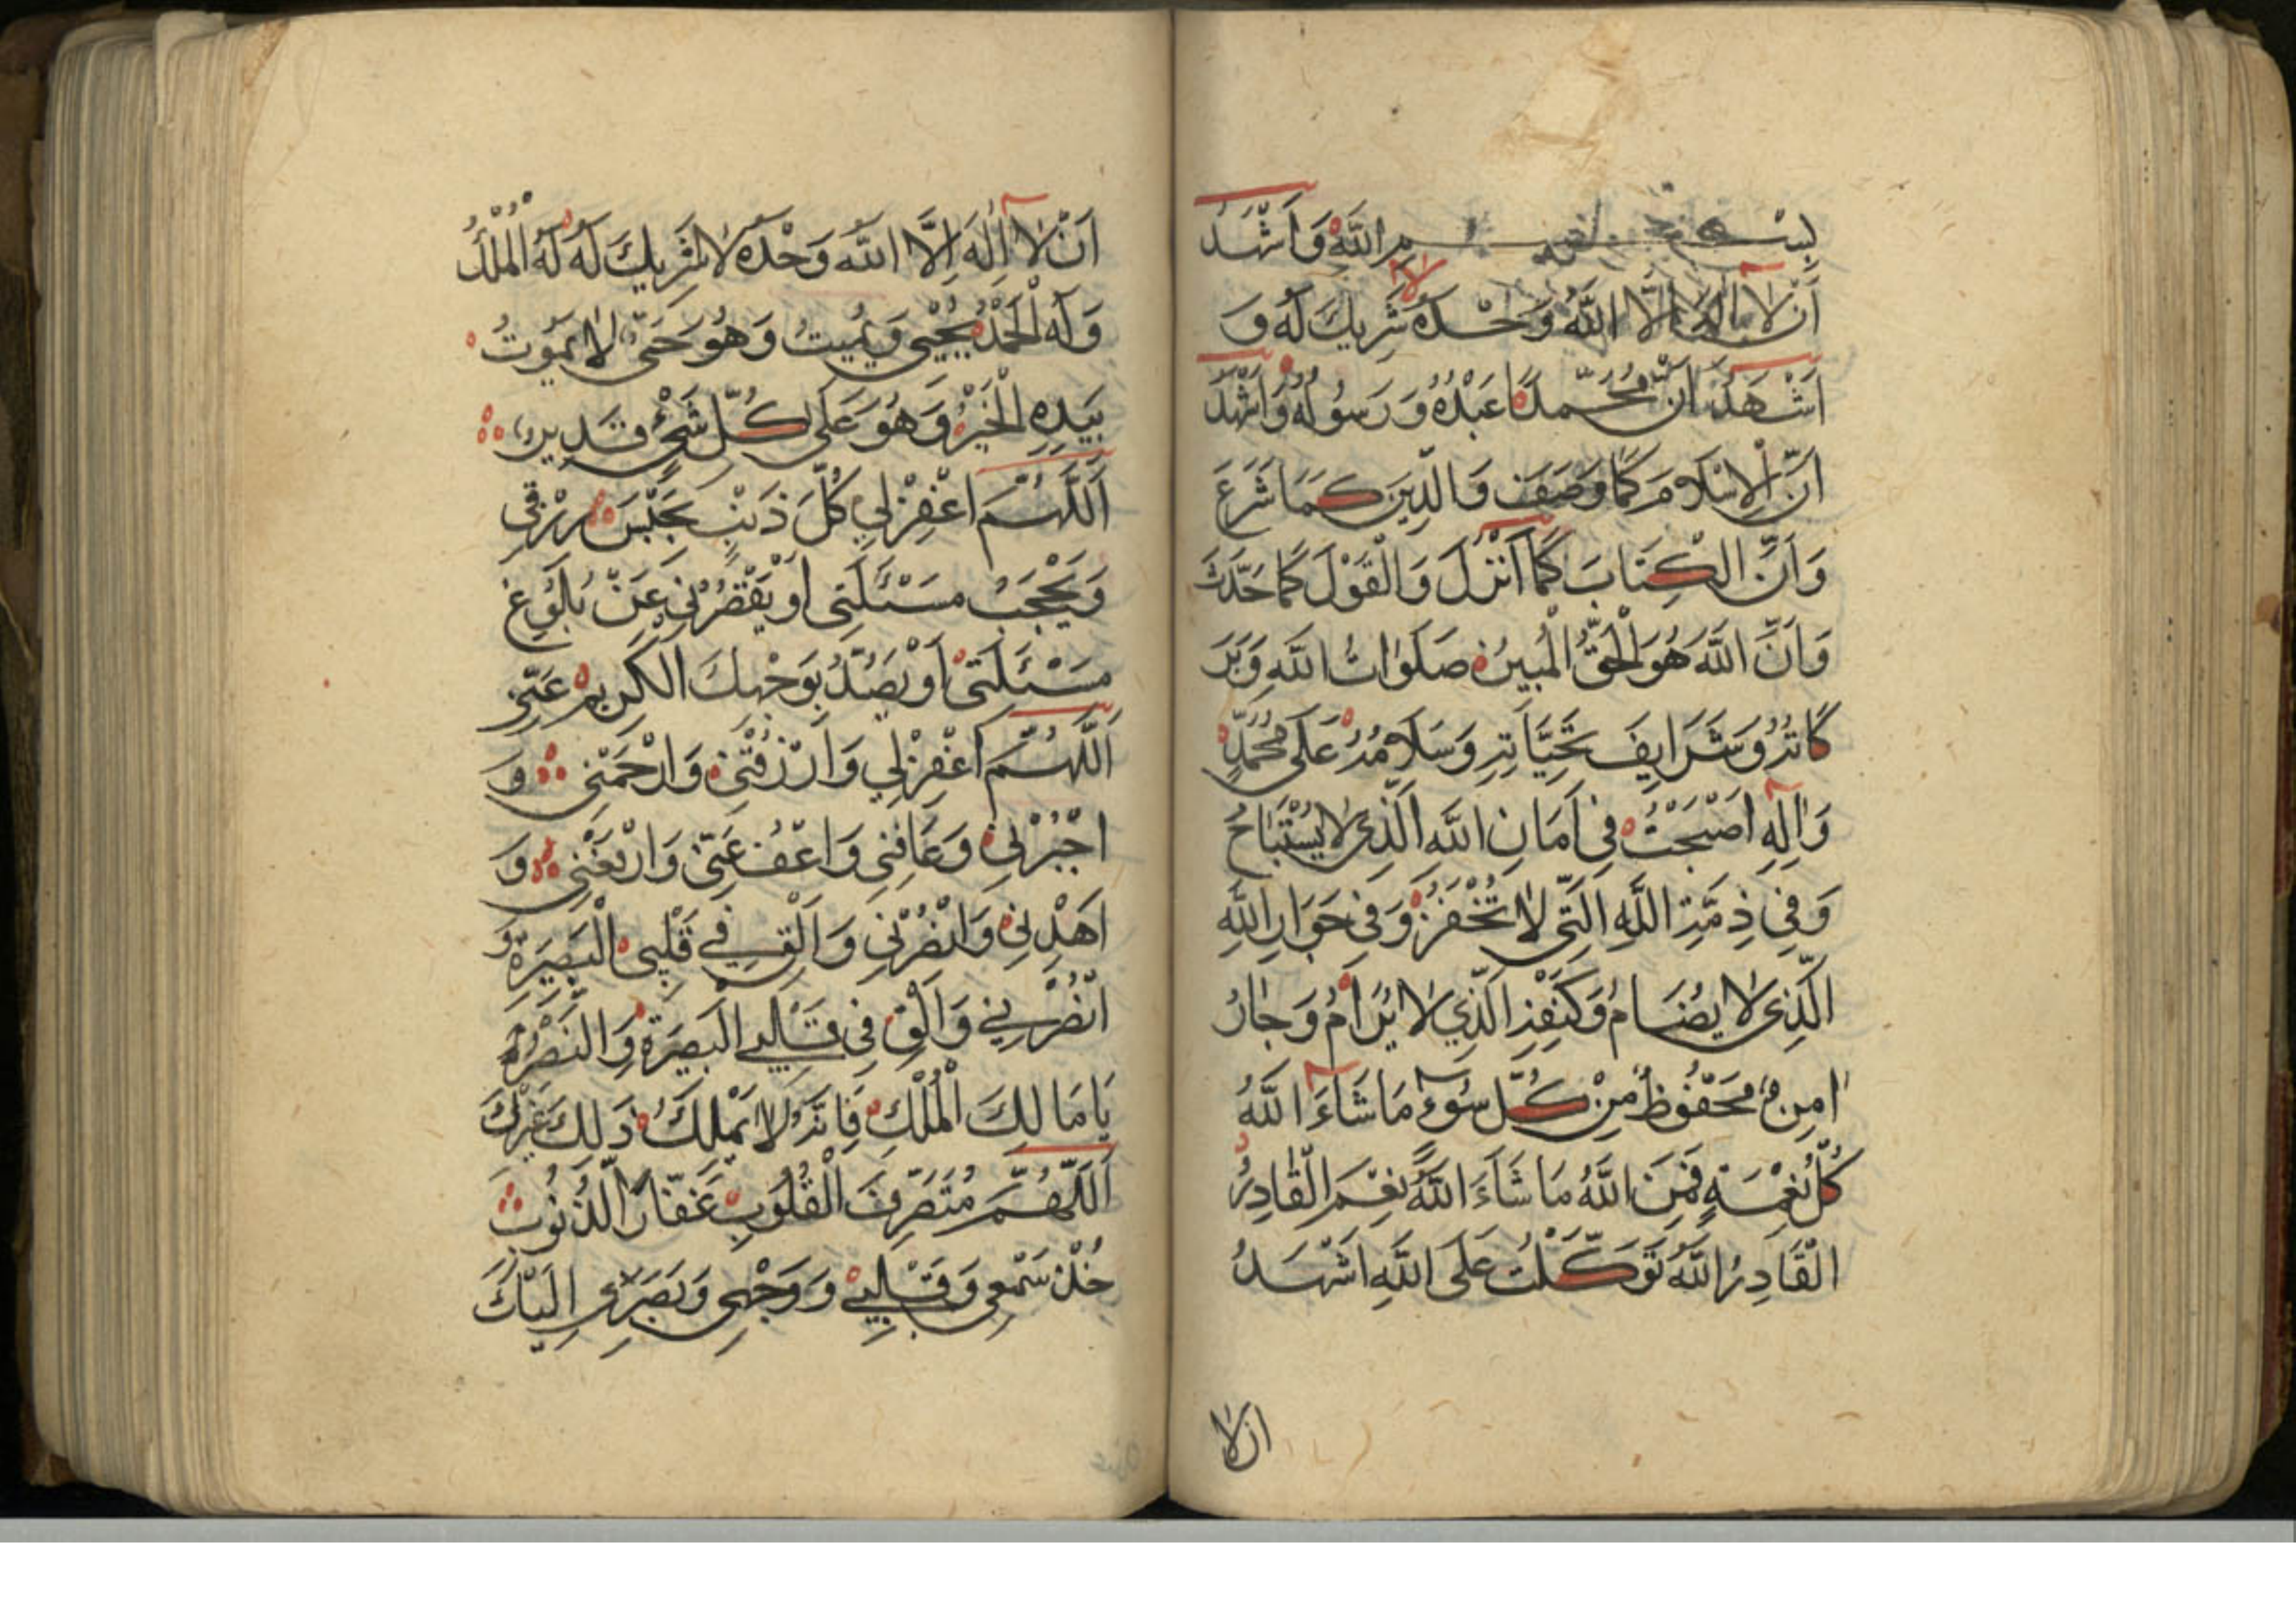 بِسْمِ اللّٰهِ وَاَشْهَدُ
اَنْ لَا اِلٰهَ اِلَّا اللّٰهُ وَحْدَهُ لَا شَرِيكَ لَهُ وَ
اَشْهَدُ اَنَّ مُحَمَّدًا عَبْدُهُ وَرَسُولُهُ وَاَشْهَدُ
اَنَّ الْاِسْلَامَ كَمَا وَصَفَ وَالدِّينَ كَمَا شَرَعَ
وَاَنَّ الْكِتَابَ كَمَا اَنْزَلَ وَالْقَوْلَ كَمَا حَدَّثَ
وَاَنَّ اللّٰهَ هُوَ الْحَقُّ الْمُبِينُ صَلَوَاتُ اللّٰهِ وَبَرَ
كَاتُهُ وَشَرَايِفَ تَحِيَّاتِهِ وَسَلَامُهُ عَلَى مُحَمَّدٍ
وَاٰلِهِ اَصْبَحْتُ فِي اَمَانِ اللّٰهِ الَّذِي لَا يُسْتَبَاحُ
وَفِي ذِمَّةِ اللّٰهِ الَّتِي لَا تُخْفَرُ وَفِي جَوَارِ اللّٰهِ
الَّذِي لَا يُضَامُ وَكَنَفِهِ الَّذِي لَا يُرَامُ وَجَارُ
اٰمِنٌ مَحْفُوظٌ مِنْ كُلِّ سُوءٍ مَا شَاءَ اللّٰهُ
كُلُّ نِعْمَةٍ فَمِنَ اللّٰهُ مَا شَاءَ اللّٰهُ نِعْمَ الْقَادِرُ
الْقَادِرُ اللّٰهُ تَوَكَّلْتُ عَلَى اللّٰهِ اَشْهَدُ
ان لا
اَنْ لَا اِلٰهَ اِلَّا اللّٰهُ وَحْدَهُ لَا شَرِيكَ لَهُ لَهُ الْمُلْكُ
وَلَهُ الْحَمْدُ يُحْيِي وَيُمِيتُ وَهُوَ حَيٌّ لَا يَمُوتُ
بِيَدِهِ الْخَيْرُ وَهُوَ عَلَى كُلِّ شَيْءٍ قَدِيرٌ
اَللّٰهُمَّ اغْفِرْ لِي كُلَّ ذَنْبٍ يَحْبِسُ رِزْقِي
وَيَحْجُبُ مَسْئَلَتِي اَوْ يَقْصُرُنِي عَنْ بُلُوغِ
مَسْئَلَتِي اَوْ يَصُدُّ بِوَجْهِكَ الْكَرِيمِ عَنِّي
اَللّٰهُمَّ اغْفِرْ لِي وَارْزُقْنِي وَارْحَمْنِي وَ
اجْبُرْنِي وَعَافِنِي وَاعْفُ عَنِّي وَارْفَعْنِي وَ
اهْدِنِي وَانْصُرْنِي وَاَلْقِ فِي قَلْبِي الْبَصِيرَةَ وَ
انْصُرْنِي وَاَلْقِ فِي قَلْبِي الْبَصِرَةَ وَالنَّصْرَةَ
يَا مَالِكَ الْمُلْكِ فَاِنَّهُ لَا يَمْلِكُ ذَلِكَ غَيْرُكَ
اَللّٰهُمَّ مُتَصَرِّفَ الْقُلُوبِ غَفَّارَ الذُّنُوبِ
خُذْ سَمْعِي وَقَلْبِي وَوَجْهِي وَبَصَرِي اِلَيْكَ